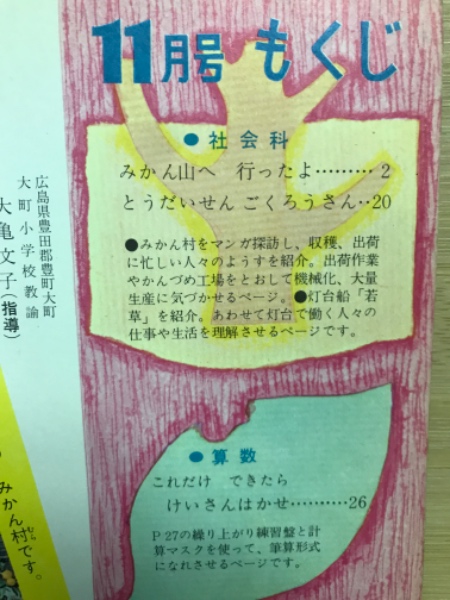 11月号 もくじ
●社会科
みかん山へ 行ったよ………2
とうだいせん ごくろうさん‥20
●みかん村をマンガ探訪し、収穫、出荷
に忙しい人々のようすを紹介。出荷作業
やかんづめ工場をとおして機械化、大量
生産に気づかせるページ。●灯台船「若
草」を紹介。あわせて灯台で働く人々の
仕事や生活を理解させるページです。
●算数
これだけ できたら
けいさんはかせ………‥26
P27の繰り上がり練習盤と計
算マスクを使って、筆算形式
になれさせるページです。
広島県豊田郡豊町大町
大町小学校教諭
大亀文子(指導)
みかん村です。
むら